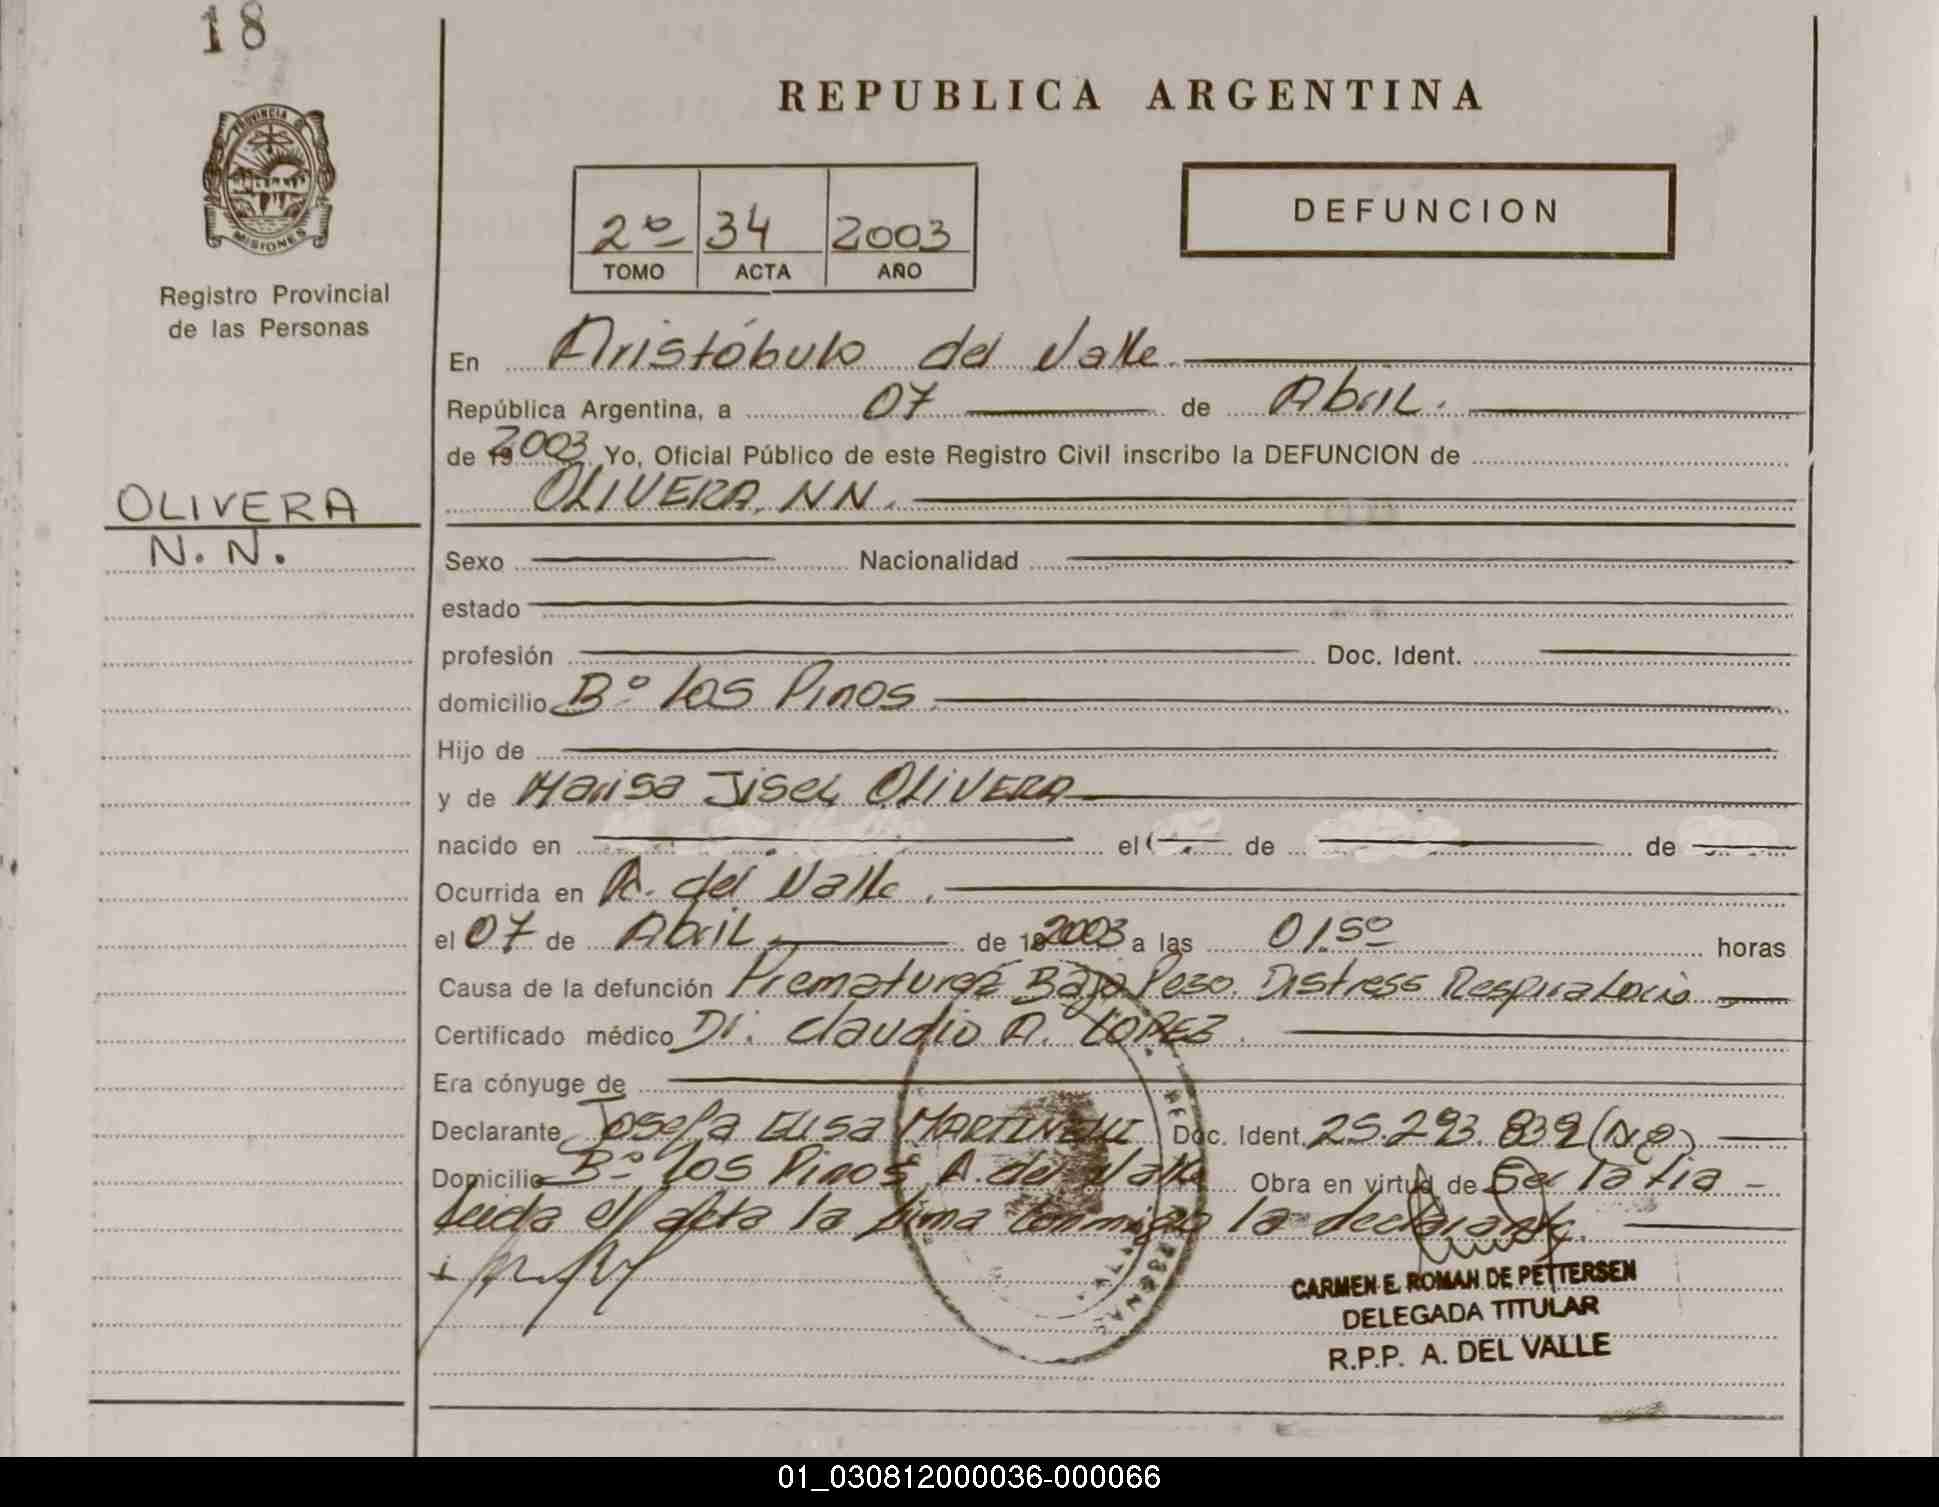 18
REPUBLICA ARGENTINA
PROVINCIA DE
MISIONES
Registro Provincial
de las Personas
2º 34 2003
TOMO ACTA AÑO
DEFUNCION
En Aristóbulo del Valle.
República Argentina, a 07 de Abril.
de 2003 Yo, Oficial Público de este Registro Civil inscribo la DEFUNCION de
OLIVERA, NN.
OLIVERA
N.N.
Sexo Nacionalidad
estado
profesión Doc. Ident.
domicilio Bº Los Pinos
Hijo de
y de Marisa Jisel OLIVERA
nacido en el de de
Ocurrida en A. del Valle.
el 07 de Abril de 2003 a las 01.50 horas
Causa de la defunción Prematurez Bajo Peso. Distress Respiratorio
Certificado médico Dr. Claudio A. LOPEZ.
Era cónyuge de
Declarante Josefa Elisa MARTINELLI Doc. Ident. 25.293.839
Domicilio Bº Los Pinos A. del Valle Obra en virtud de Ser la tia -
Leida el acta la firma conmigo la declarante.
CARMEN E. ROMAN DE PETTERSEN
DELEGADA TITULAR
R.P.P. A. DEL VALLE
01_030812000036-000066